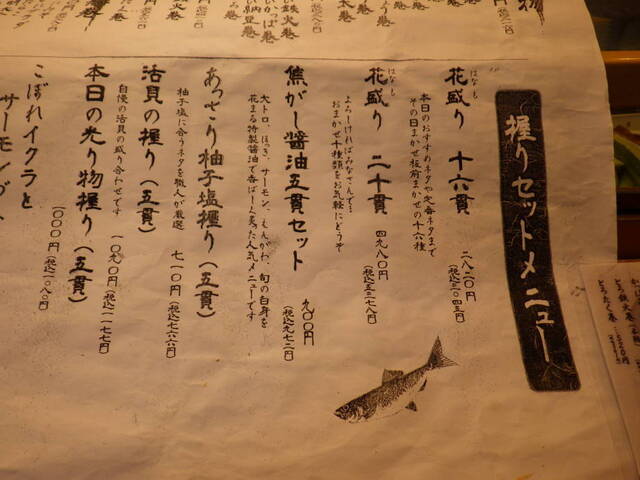 握りセットメニュー
はなもり
花盛り 十六貫
本日のおすすめネタや定番ネタまで
その日まかせ板前まかせの十六種
二八二〇円(税込三〇四五円)
はなもり
花盛り 二十貫
よろしければみなさんで…
おまかせ二十種類をお気軽にどうぞ
四九八〇円(税込五三七八円)
焦がし醬油五貫セット
大トロ、ほっき、サーモン、えんがわ、旬の白身を
花まる特製醬油で香ばしく炙った人気メニューです
九〇〇円(税込九七二円)
あっさり柚子塩握り(五貫)
柚子塩に合うネタを職人が厳選
七一〇円(税込七六六円)
活貝の握り(五貫)
自慢の活貝の盛り合わせです
一〇九〇円(税込一一七七円)
本日の光り物握り(五貫)
一〇〇〇円(税込一〇八〇円)
こぼれイクラと
サーモン
鉄火巻
かっぱ巻
納豆巻